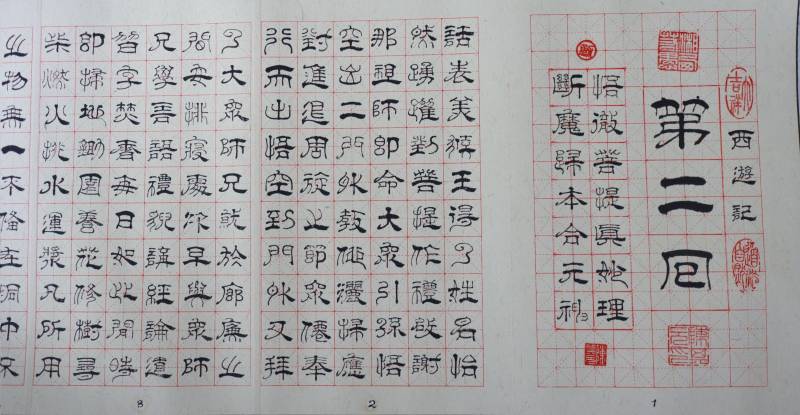 西遊記
第二回
悟徹菩提眞妙理
斷魔歸本合元神
話表美猴王得了姓名怡
然踴躍對菩提作禮啟謝
那祖師即命大眾引孫悟
空出二門外教他灑掃應
對進退周旋之節眾僊奉
行而出悟空到門外又拜
了大眾師兄就於廊廡之
間安排寢處次早與眾師
兄學言語禮貌講經論道
習字焚香每日如此閒時
即掃地鋤園養花修樹尋
柴燃火挑水運漿凡所用
之物無一不備在洞中不
1
2
3